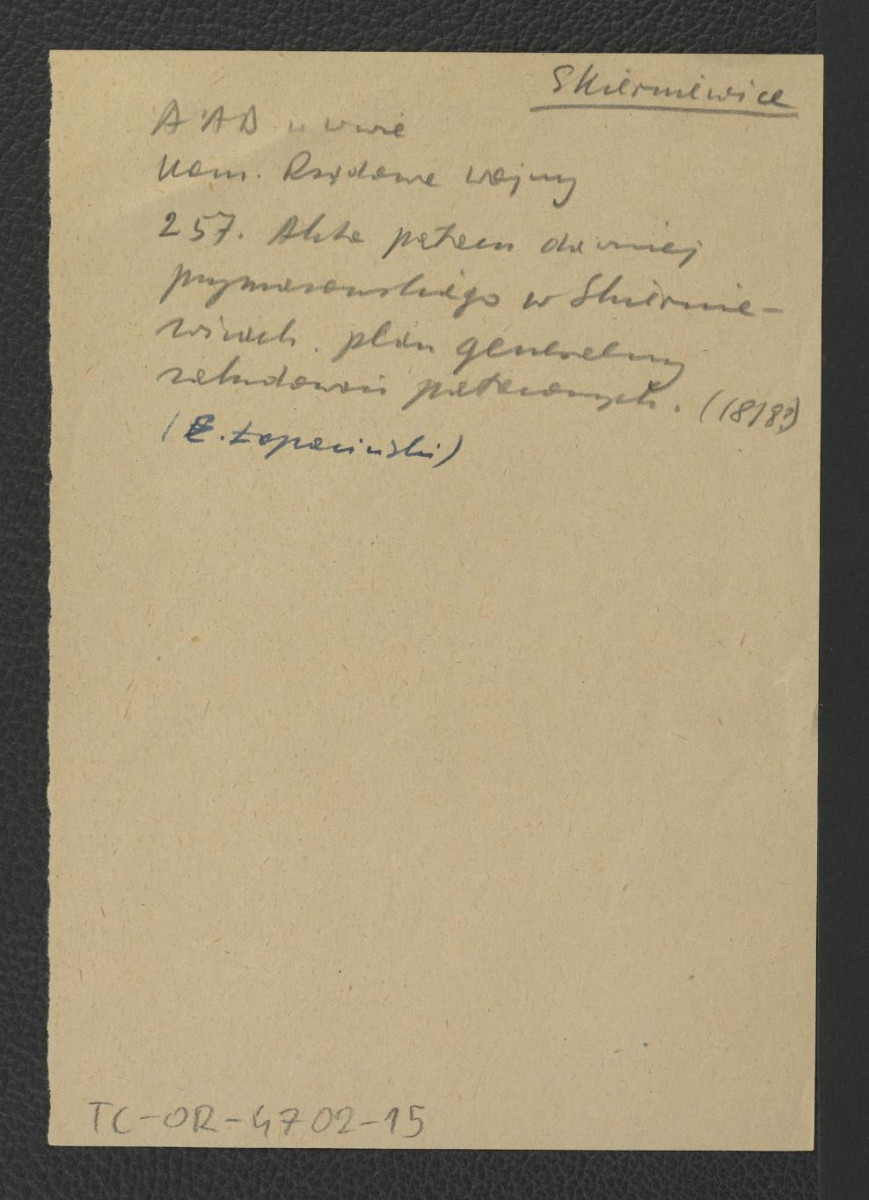 Skierniewice
AAD w wwie
Kom. Rządowa wojny
257. Akta pałacu dawniej
prymasowskiego w Skiernie-
wicach. plan generalny
zabudowań pałacowych. (1818?)
(E. Łopaciński)
TC-OR-4702-15